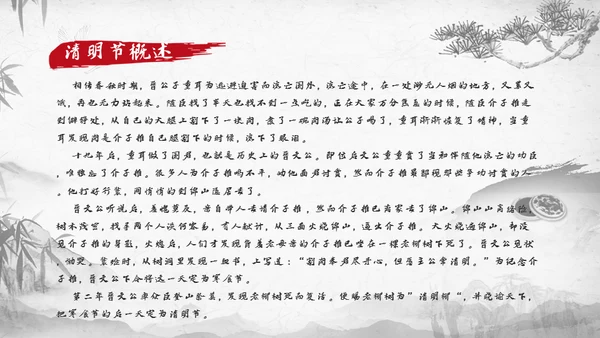 清明节概述
相传春秋时期，晋公子重耳为逃避迫害而流亡国外，流亡途中，在一处渺无人烟的地方，又累又
饿，再也无力站起来。随臣找了半天也找不到一点吃的，正在大家万分焦急的时候，随臣介子推走
到僻静处，从自己的大腿上割下了一块肉，煮了一碗肉汤让公子喝了，重耳渐渐恢复了精神，当重
耳发现肉是介子推自己腿割下的时候，流下了眼泪。
十九年后，重耳做了国君，也就是历史上的晋文公。即位后文公重重赏了当初伴随他流亡的功臣
，唯独忘了介子推。很多人为介子推鸣不平，劝他面君讨赏，然而介子推最鄙视那些争功讨赏的人
。他打好行装，同悄悄的到绵山隐居去了。
晋文公听说后，羞愧莫及，亲自带人去请介子推，然而介子推已离家去了绵山。绵山山高路险，
树木茂密，找寻两个人谈何容易，有人献计，从三面火烧绵山，逼出介子推。大火烧遍绵山，却没
见介子推的身影，火熄后，人们才发现背着老母亲的介子推已坐在一棵老柳树下死了。晋文公见状
，恸哭。装殓时，从树洞里发现一血书，上写道：“割肉奉君尽丹心，但愿主公常清明。”为纪念介
子推，晋文公下令将这一天定为寒食节。
第二年晋文公率众臣登山祭奠，发现老柳树死而复活。便赐老柳树为”清明柳“，并晓谕天下，
把寒食节的后一天定为清明节。